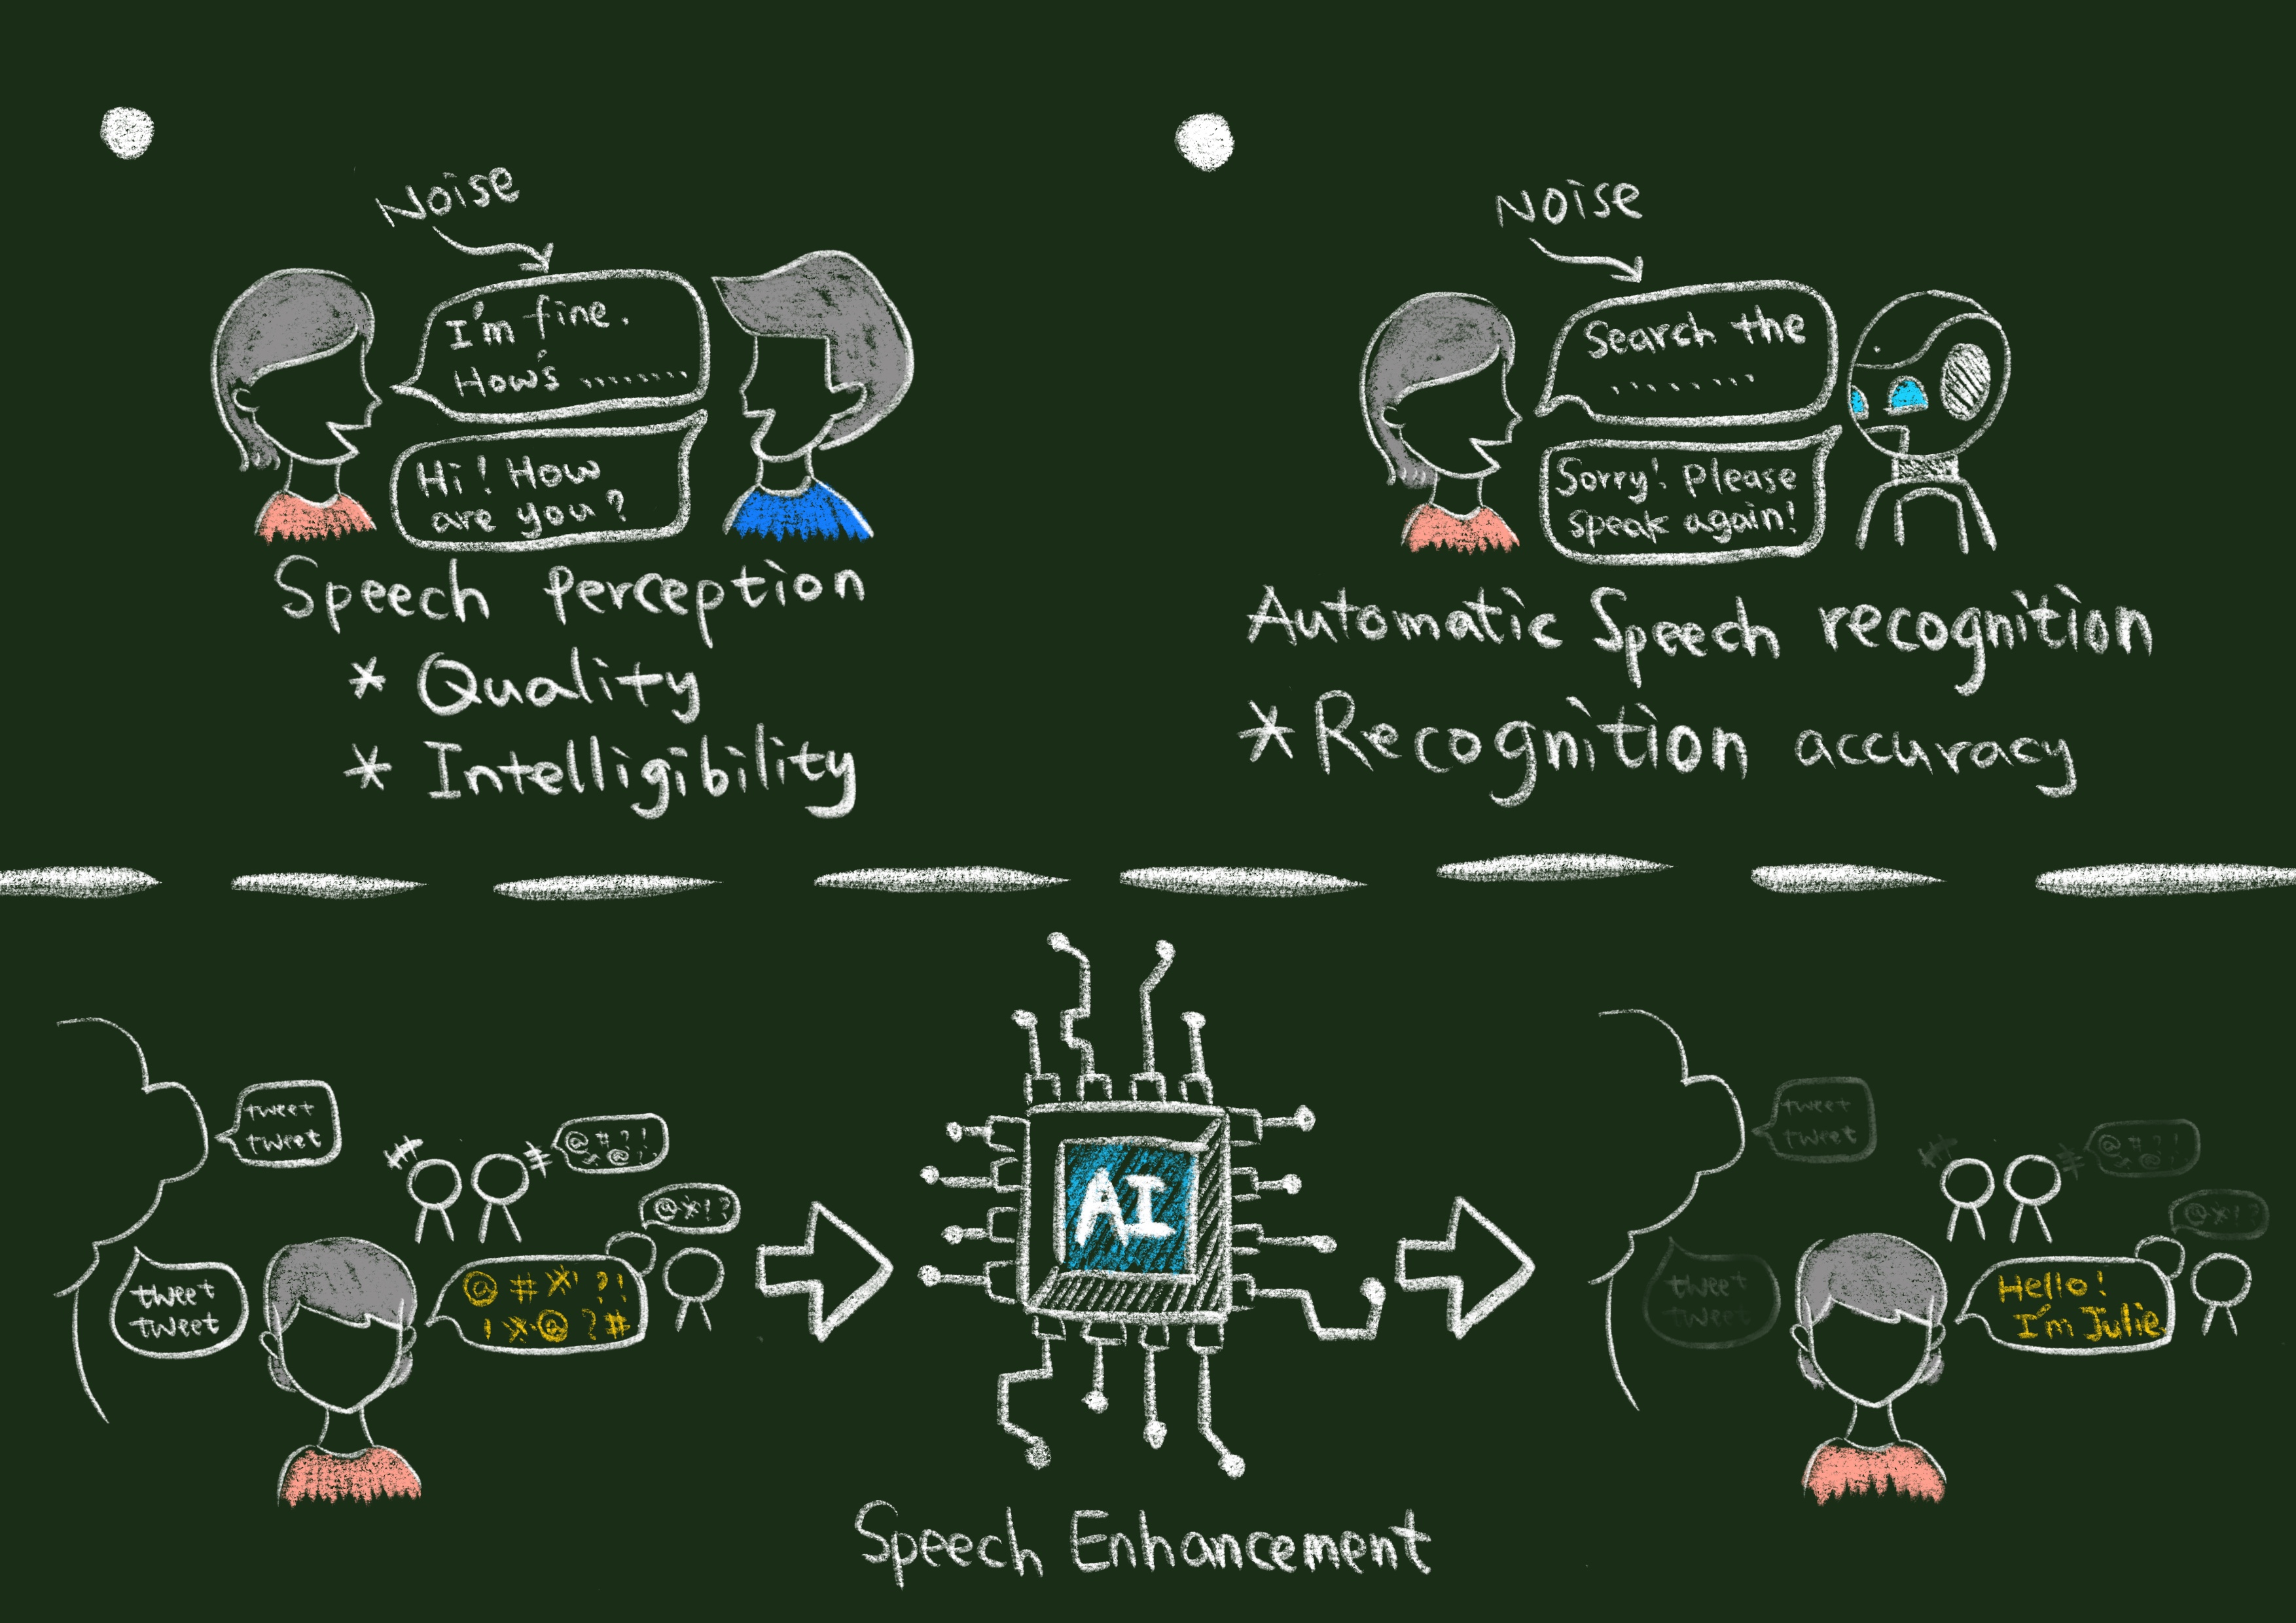 Noise
I'm fine.
How's ........
Hi! How
are you?
Speech Perception
* Quality
* Intelligibility
Noise
Search the
........
Sorry! Please
speak again!
Automatic Speech recognition
* Recognition accuracy
tweet
tweet
tweet
tweet
@ # ? !
? @ ? !
@*!?
@ # * ! ? !
! * @ ? #
AI
Speech Enhancement
tweet
tweet
tweet
tweet
@ # ? !
? @ ? !
@*!?
Hello!
I'm Julie